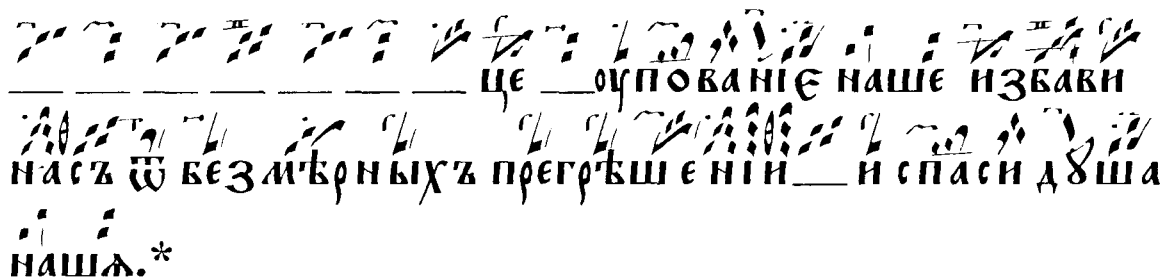 __ __ __ __ __ __ __ це __ оупованіє наше избави
насъ ѿ безмѣрныхъ прегрѣшеніи __ и спаси дꙋша
нашѧ.*